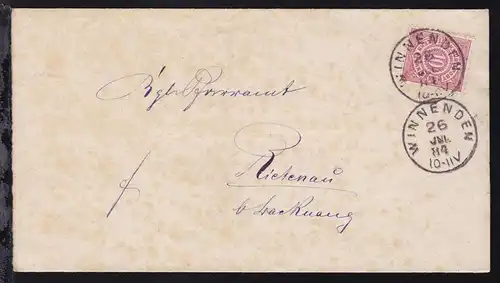 WINNENDEN
10
WINNENDEN
26
JUL
84
10-11V
Kgl. Pfarramt
Rietenau
b. Backnang